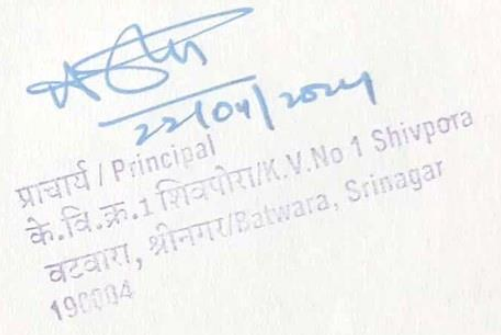 22/04/2024
प्राचार्य / Principal
के.वि.क्र.1 शिवपोरा/K.V.No 1 Shivpora
वटवारा, श्रीनगर/Batwara, Srinagar
190004